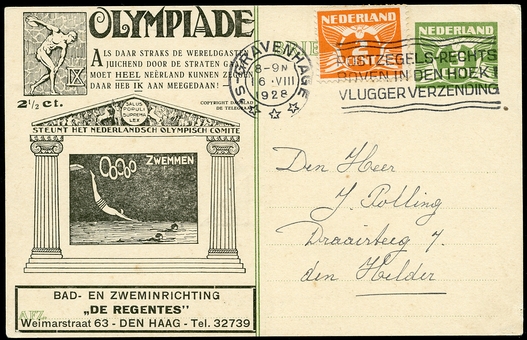 OLYMPIADE
ALS DAAR STRAKS DE WERELDGAST
JUICHEND DOOR DE STRATEN GA
MOET HEEL NEÊRLAND KUNNEN ZE
DAAR HEB IK AAN MEEGEDAAN!
IX
2½ ct.
COPYRIGHT
DE TELEGRA
SALUS
POPULI
SUPREMA
LEX
STEUNT HET NEDERLANDSCH OLYMPISCH COMITE
ZWEMMEN
BAD- EN ZWEMINRICHTING
„DE REGENTES"
Weimarstraat 63 - DEN HAAG - Tel. 32739
'S-GRAVENHAGE
8-9N
16.VIII
1928
NEDERLAND
NEDERLAND
POSTZEGELS-RECHTS
BOVEN IN DEN HOEK
VLUGGER VERZENDING
Den Heer
J. Polling
Draaisteeg 7.
den Helder